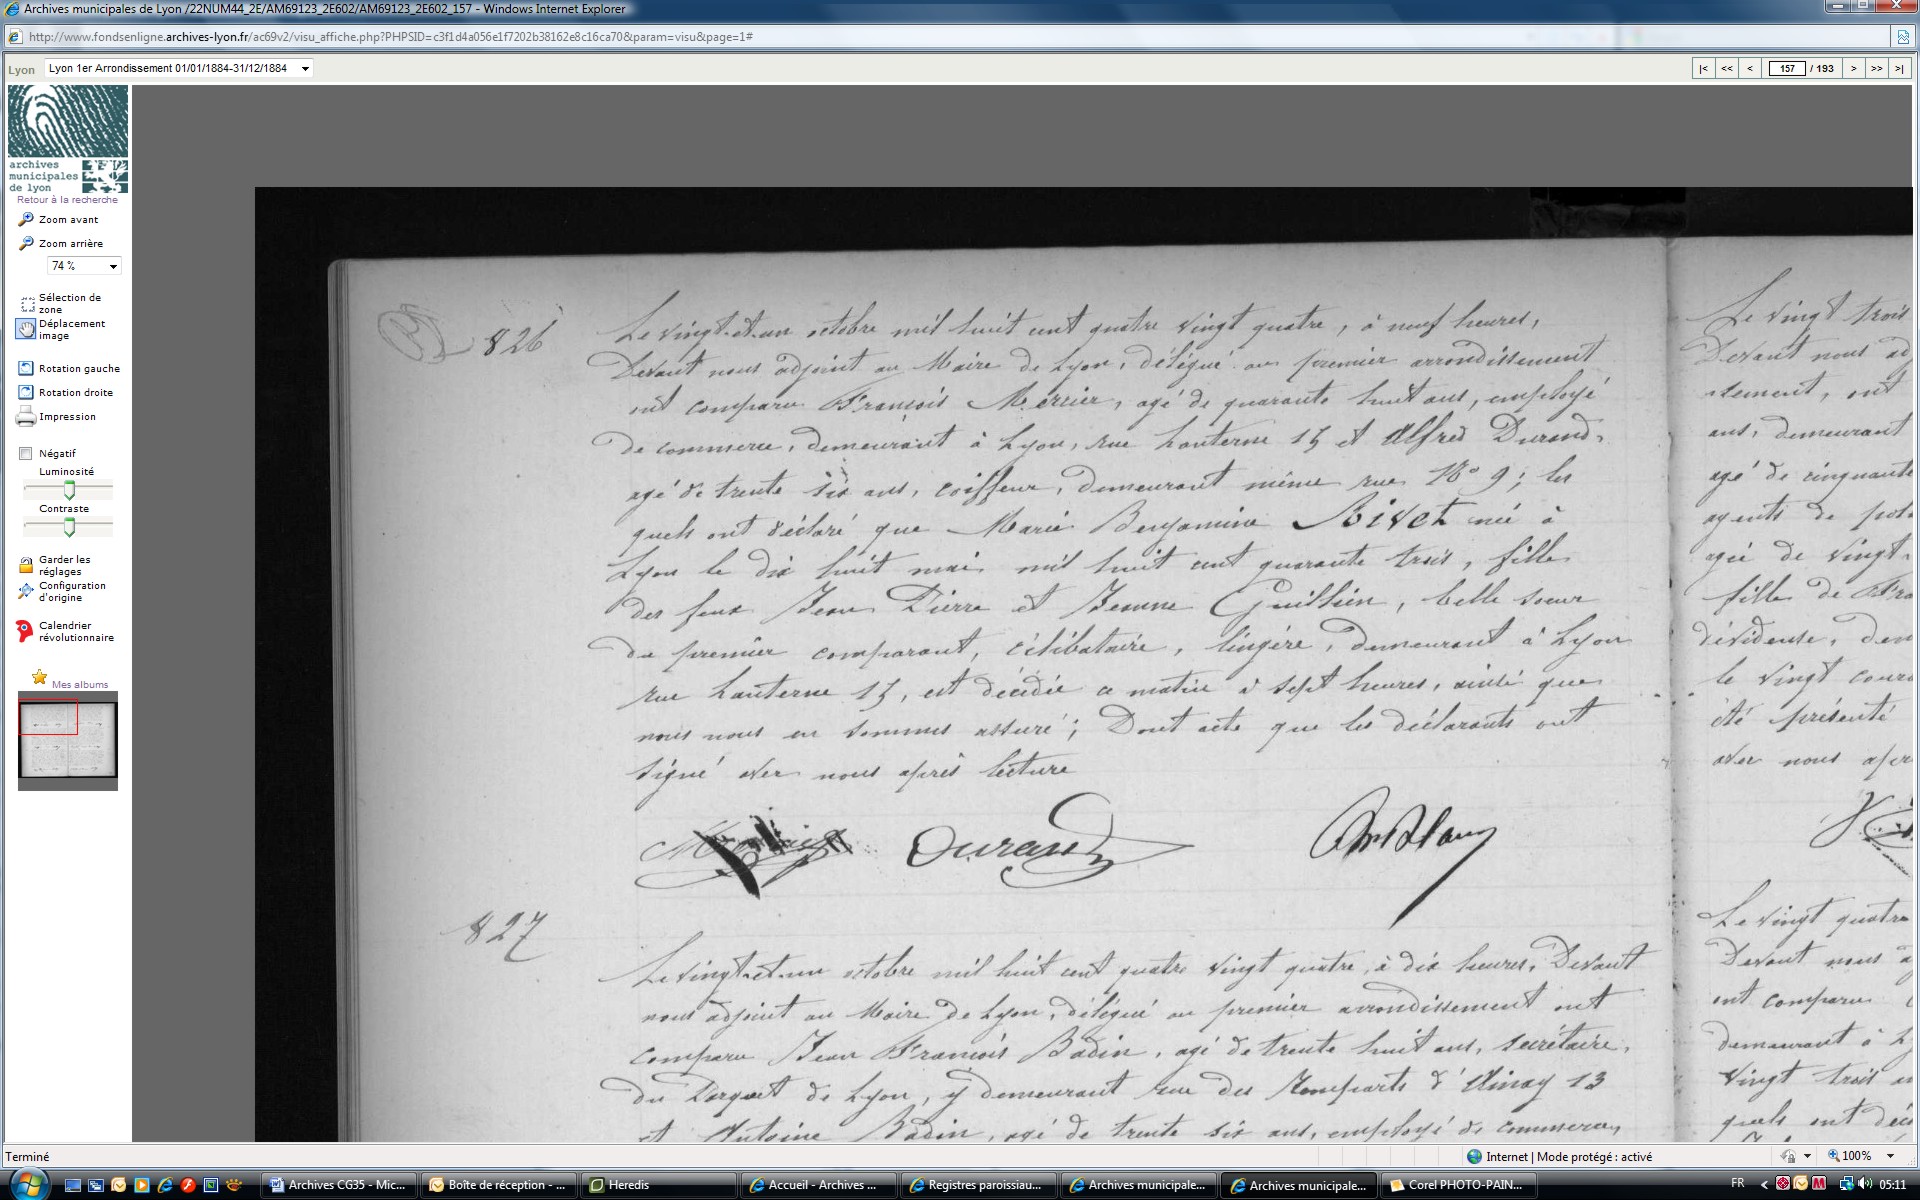 Archives municipales de Lyon /22NUM44_2E/AM69123_2E602/AM69123_2E602_157 - Windows Internet Explorer
http://www.fondsenligne.archives-lyon.fr/ac69v2/visu_affiche.php?PHPSID=c3f1d4a056e1f7202b38162e8c16ca70&param=visu&page=1#
Lyon
Lyon 1er Arrondissement 01/01/1884-31/12/1884
|<
<<
<
157
/ 193
>
>>
>|
archives
municipales
de lyon
Retour à la recherche
Zoom avant
Zoom arrière
74 %
Sélection de
zone
Déplacement
image
Rotation gauche
Rotation droite
Impression
Négatif
Luminosité
Contraste
Garder les
réglages
Configuration
d'origine
Calendrier
révolutionnaire
Mes albums
826
Le vingt-et-un octobre mil huit cent quatre vingt quatre, à neuf heures,
Devant nous adjoint au Maire de Lyon, délégué au premier arrondissement
ont comparu François Mercier, agé de quarante huit ans, employé
de commerce, demeurant à Lyon, rue Lanterne 15 et Alfred Durand,
agé de trente six ans, coiffeur, demeurant même rue No 9; les
quels ont déclaré que Marie Benjamine Rivet née à
Lyon le dix huit mai mil huit cent quarante trois, fille
des feux Jean Pierre et Jeanne Guillien, belle soeur
du premier comparant, célibataire, lingère, demeurant à Lyon
rue Lanterne 15, est décédée ce matin à sept heures, ainsi que
nous nous en sommes assuré; Dont acte que les déclarants ont
signé avec nous après lecture
Durand
827
Le vingt-et-un octobre mil huit cent quatre vingt quatre, à dix heures, Devant
nous adjoint au Maire de Lyon, délégué au premier arrondissement ont
comparu Jean François Badin, agé de trente huit ans, secrétaire
du Parquet de Lyon, y demeurant rue des Remparts d'Ainay 13
et Antoine Badin, agé de trente six ans, employé de commerce,
Le vingt trois
Devant nous adj
ssement, ont
ans, demeurant
agé de cinquante
agents de pol
agée de vingt-
fille de Fra
dévideuse, dem
le vingt cour
été présenté
avec nous apr
Le vingt quatre
Devant nous a
ont comparu
demeurant à L
vingt trois an
quels ont déc
Terminé
Internet | Mode protégé : activé
100%
Archives CG35 - Mic...
Boîte de réception - ...
Heredis
Accueil - Archives ...
Registres paroissiau...
Archives municipale...
Archives municipale...
Corel PHOTO-PAIN...
FR
05:11